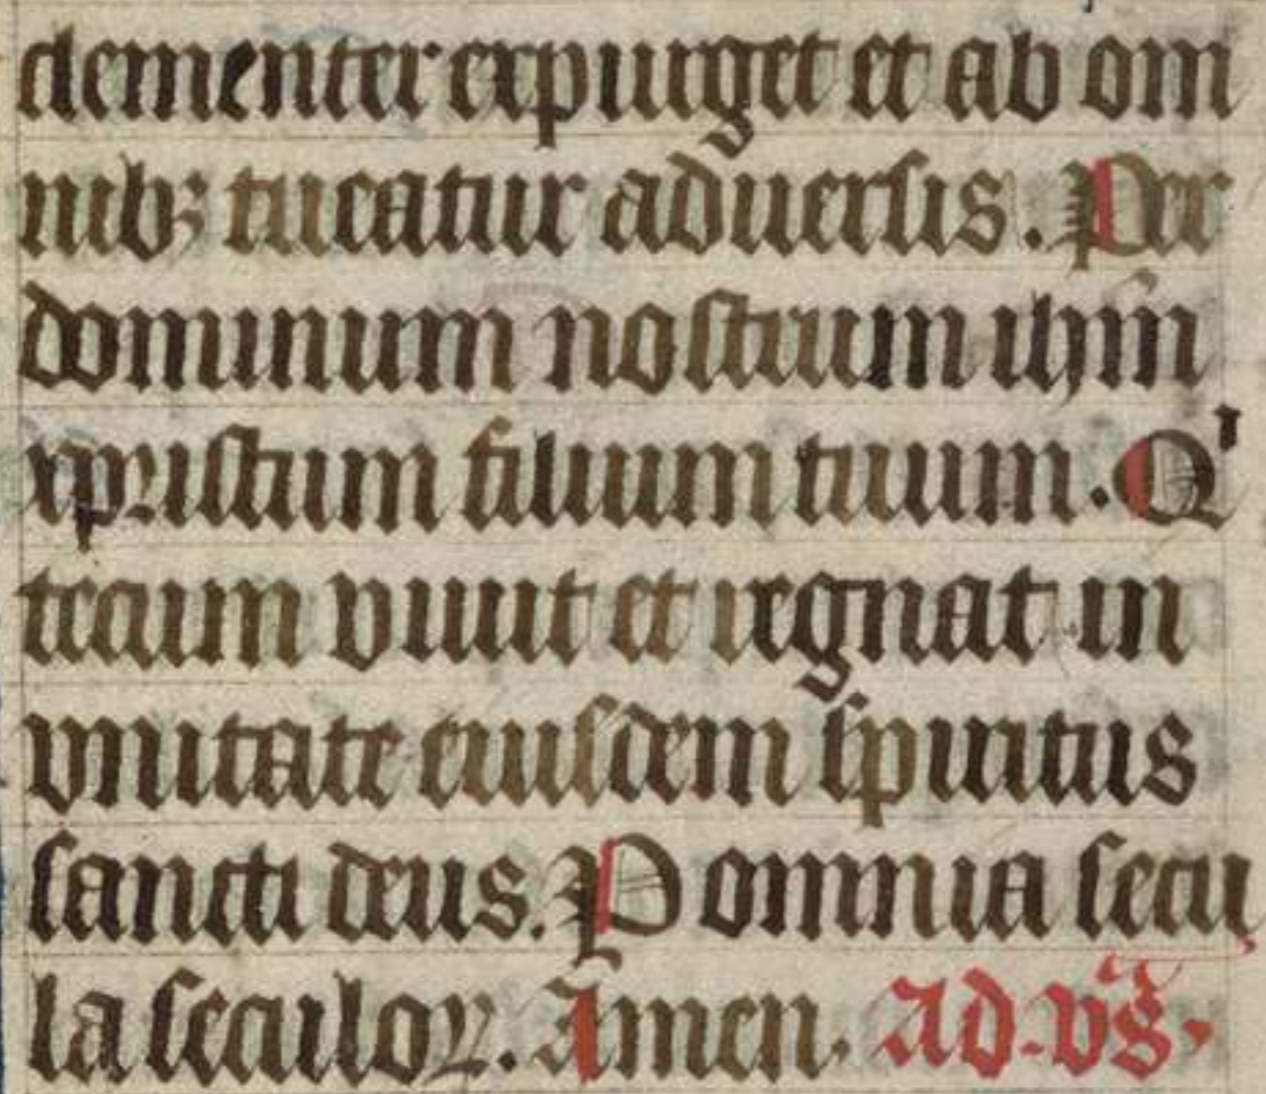 clementer expurget et ab om
nibꝫ tueatur aduersis. Per
dominum nostrum ihm̄
xpristum filium tuum. Qⁱ
tecum viuit et regnat in
vnitate eiusdem spiritus
sancti deus. P omnia secu
la seculoꝝ. Amen. Ad vs̄.